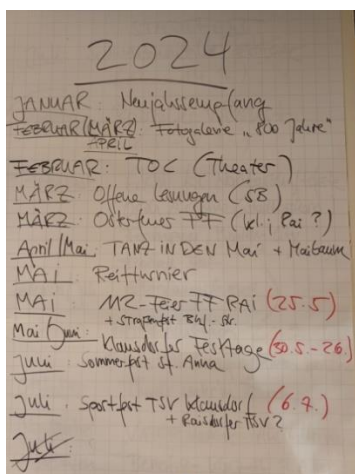 2024
JANUAR: Neujahrsempfang
FEBRUAR (MÄRZ): Fotogalerie „800 Jahre"
APRIL
FEBRUAR: TOC (Theater)
MÄRZ: Offene Lesungen (SB)
MÄRZ: Osterfeuer FF (kl.; Rai?)
April/Mai: TANZ IN DEN Mai + Maibaum
MAI: Reitturnier
MAI FF RAI (25.5)
+ Straßenfest
Mai/Juni: Klausdorfer Festtage (30.5.-2.6.)
Juni: Sommerfest St. Anna
Juli: Sportfest TSV Klausdorf (6.7.)
+ Raisdorfer TSV?
Juli: